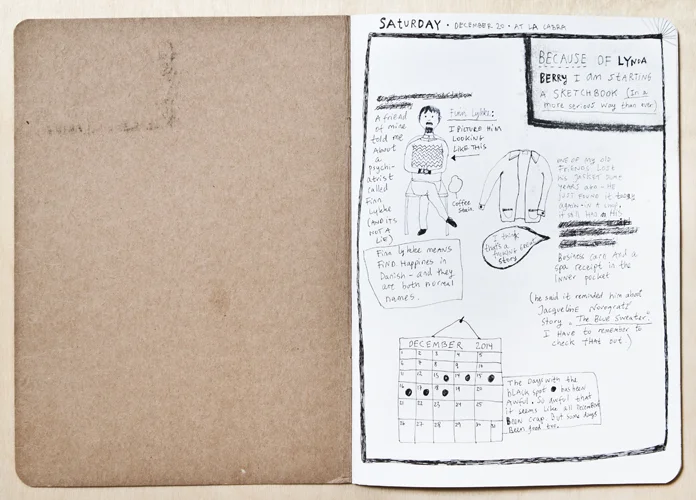 SATURDAY · DECEMBER 20 · AT LA CABRA
BECAUSE OF LYNDA
BERRY I am STARTING
A SKETCHBOOK (In a
more serious way than ever)
A friend
of mine
told me
About
a
psychi-
atrist
called
Finn
Lykke
(AND ITS
NOT A
LIE)
Finn Lykke:
I PICTURE HIM
LOOKING
LIKE THIS
Coffee
stain
Finn lykke MEANS
FIND Happines in
Danish - and they
are both normal
names.
ONE OF MY OLD
FRIENDS LOST
HIS JACKET SOME
YEARS AGO - HE
JUST FOUND IT TODAY
AGAIN · IN A
it still HAD HIS
Business card And a
spa receipt in the
inner pocket
I think
that's a
fucking
story
(he said it reminded him about
Jacqueline Novograts'
Story "The Blue Sweater".
I Have to remember to
check THAT out)
DECEMBER 2014
1 2 3 4 5
6 7 8 9 10
11 12 13 14 15
16 17 18 19 20
21 22 23 24 25
26 27 28 29 30 31
The Days with the
black spot has been
Awful. So awful that
it seems like all December
Been crap But some days
Been good too.